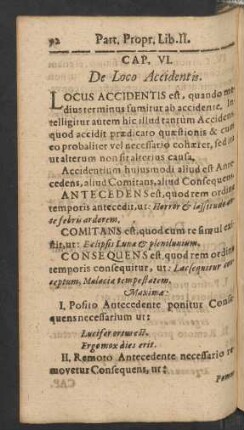 92 Part. Propr. Lib. II.
CAP. VI.
De Loco Accidentis.
LOCUS ACCIDENTIS est, quando me-
dius terminus sumitur ab accidente. In-
telligitur autem hic illud tantùm Accidens
quod accidit prædicato quæstionis & cum
eo probaliter vel necessario cohæret, sed ita
ut alterum non sit alterius causa.
Accidentium hujusmodi aliud est Ante-
cedens, aliud Comitans, aliud Consequens.
ANTECEDENS est, quod rem ordine
temporis antecedit, ut: Horror & lassitudo an-
te febris ardorem,
COMITANS est, quod cum re simul ex-
stit, ut: Eclipsis Lunæ & plenilunium.
CONSEQUENS est, quod rem ordine
temporis consequitur, ut: Lac sequitur con-
ceptum, Malacia tempestatem.
Maxima:
I. Posito Antecedente ponitur Conse-
quens necessarium ut:
Lucifer ortus est.
Ergo mox dies erit.
II. Remoto Antecedente necessario re-
movetur Consequens, ut:
CAP.